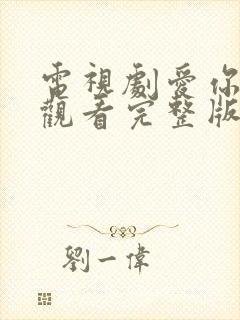 電視劇愛你
觀看完整版
劉一偉